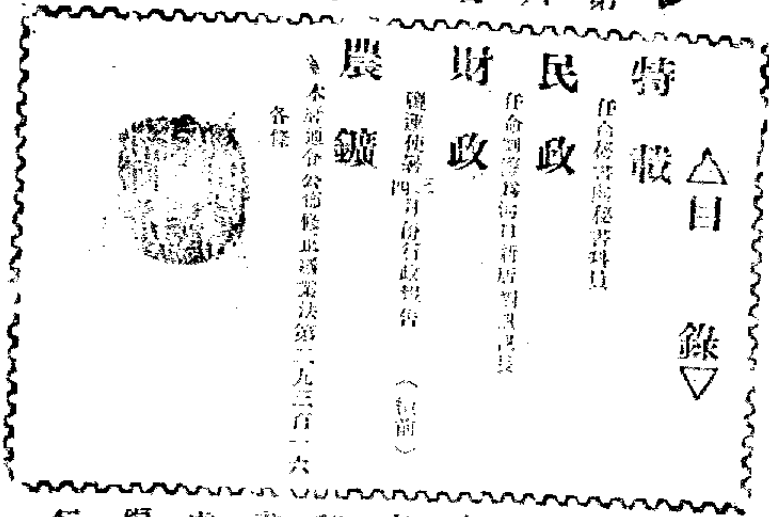 △目錄▽
特載
任命秘書處秘書科員
民政
任命劉 為海口新 長
財政
鹽運使署三四月份行政報告 (續前)
農鑛
本府通令公佈修正 業法第二九三百一六
各條